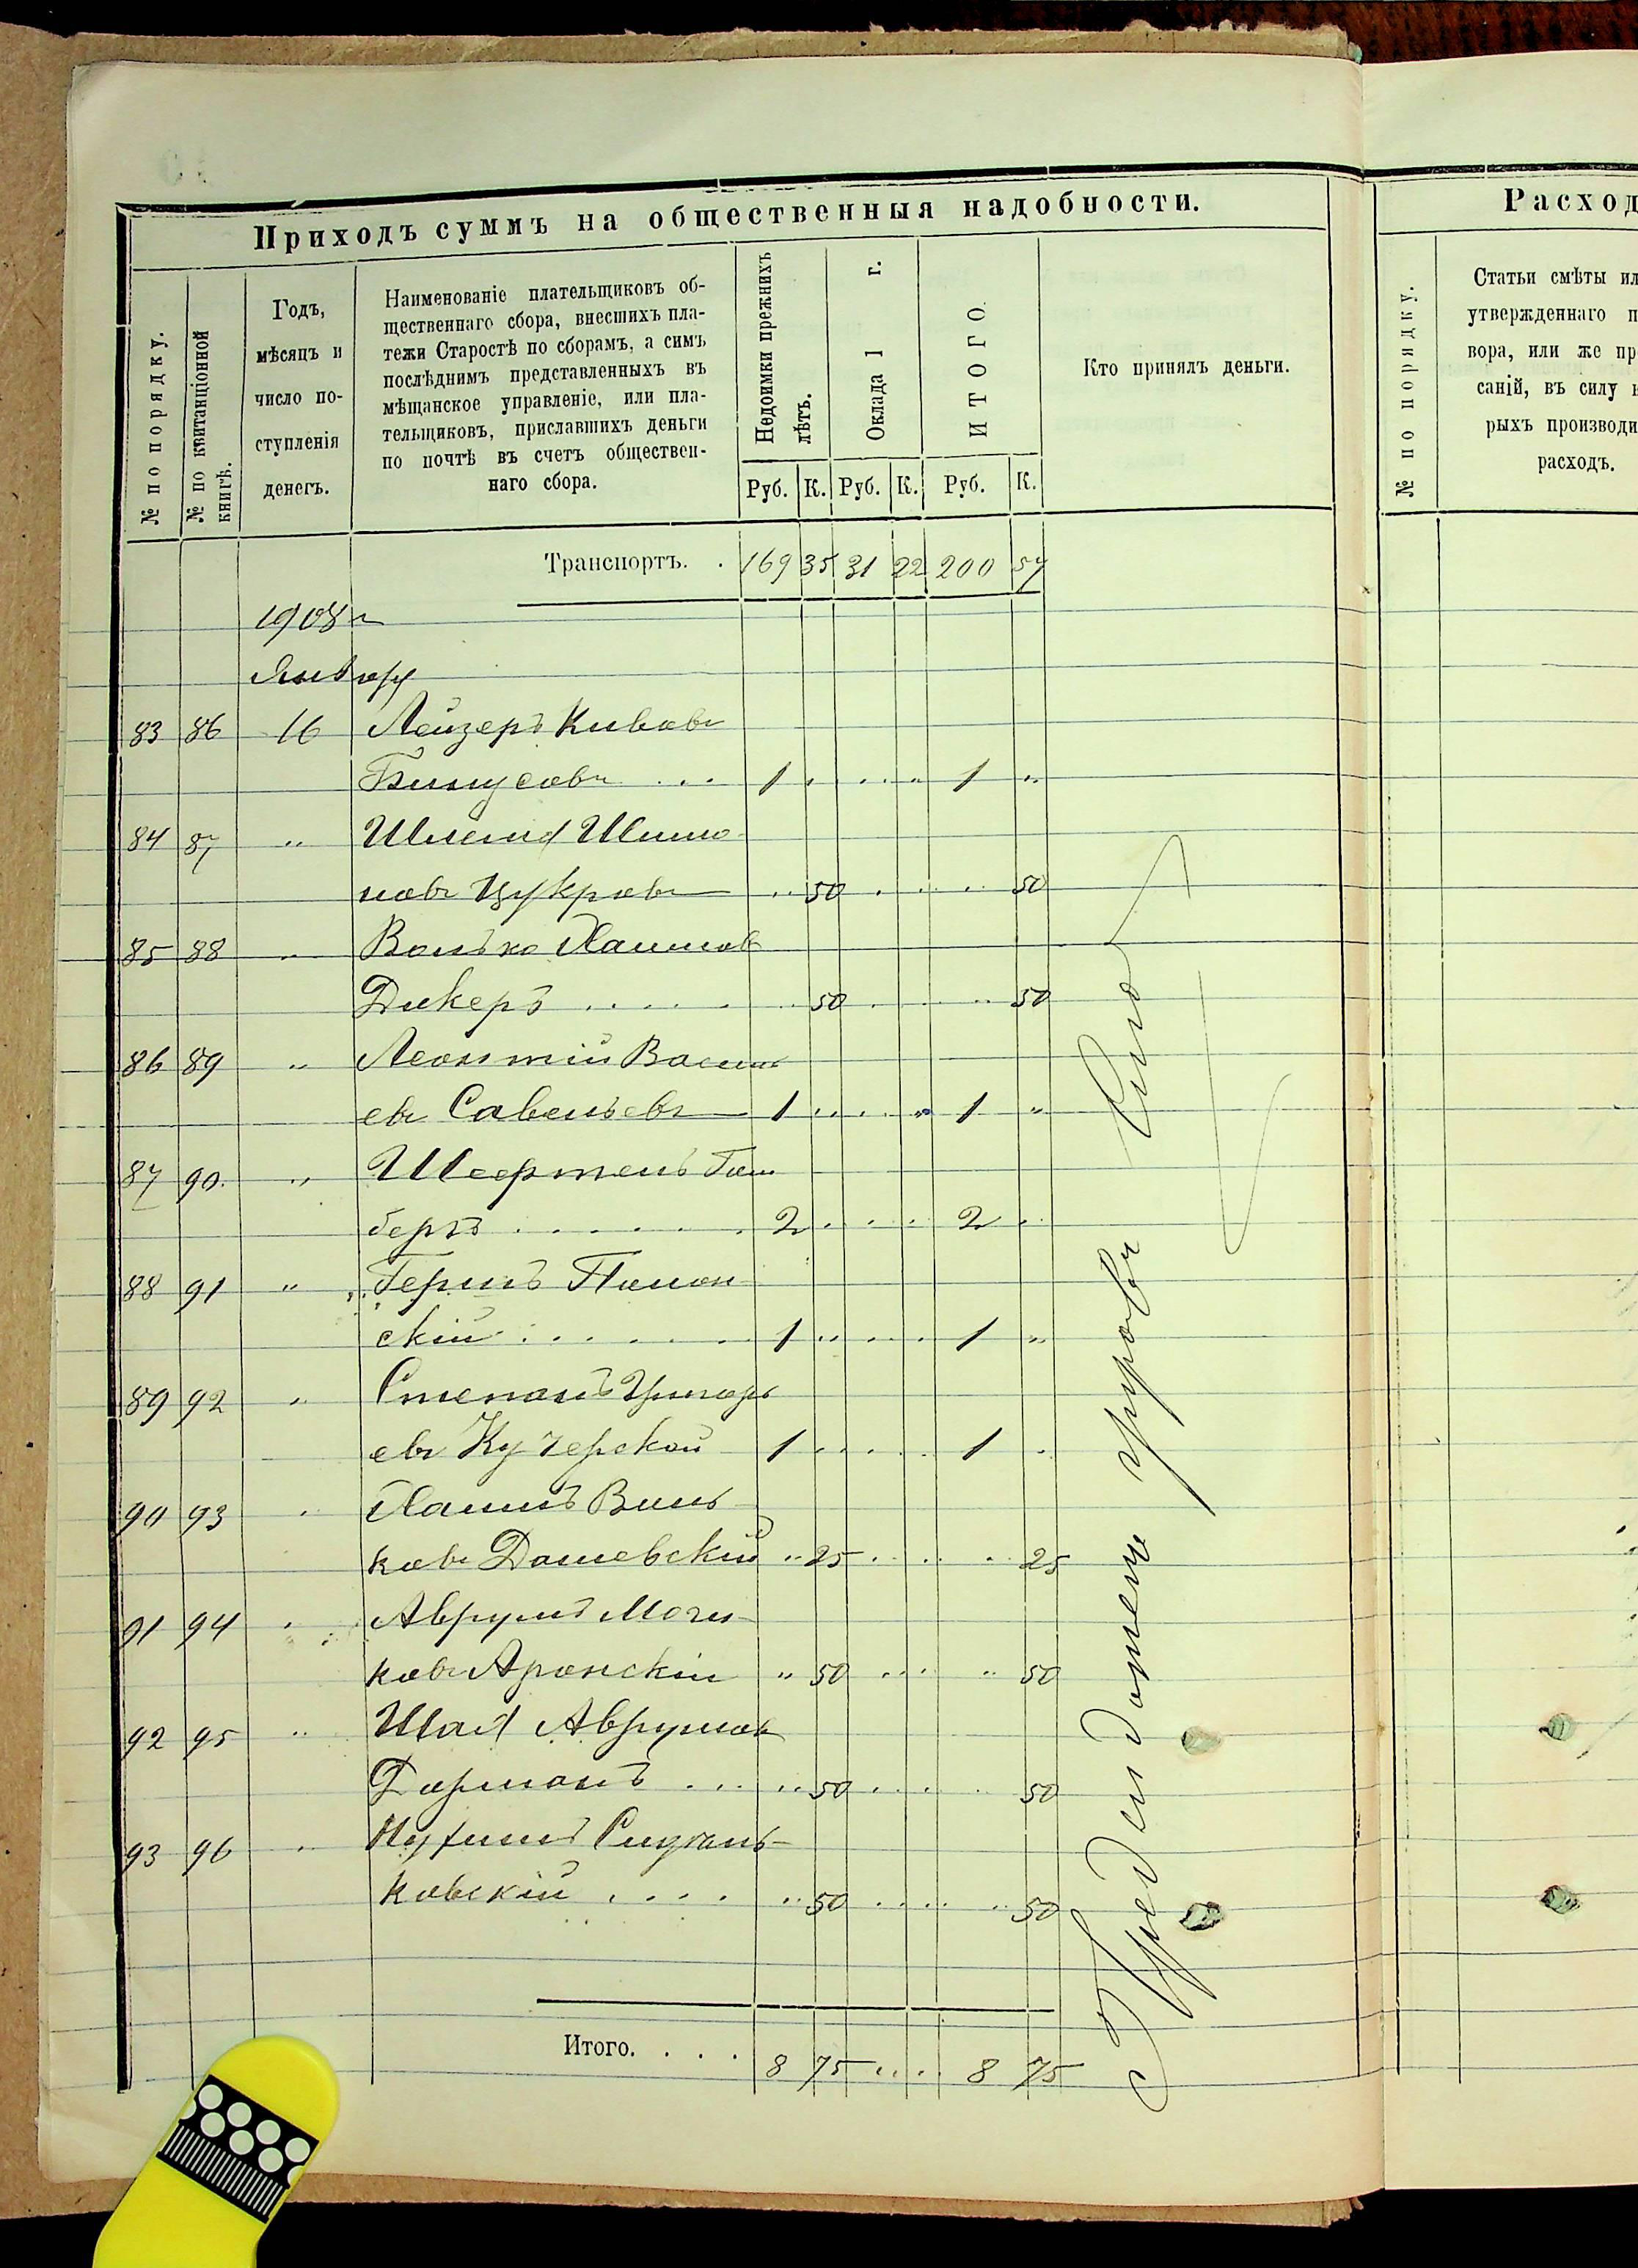 Приходъ суммъ на общественныя надобности.
№ по порядку.
№ по квитанціонной
книгѣ.
Годъ,
мѣсяцъ и
число по-
ступленія
денегъ.
Наименованіе плательщиковъ об-
щественнаго сбора, внесшихъ пла-
тежи Старостѣ по сборамъ, а симъ
послѣднимъ представленныхъ въ
мѣщанское управленіе, или пла-
тельщиковъ, приславшихъ деньги
по почтѣ въ счетъ обществен-
наго сбора.
Недоимки прежнихъ
лѣтъ.
Оклада 1 г.
ИТОГО.
Кто принялъ деньги.
Руб. К. Руб. К. Руб. К.
Транспортъ. . 169 35 31 22 200 57
1908 г
Январь
83 86 16 Лейзеръ Кивовъ
. . . 1 . . . „ 1 „
84 87 „
новъ Цукровъ „ 50 . . . . 50
85 88 „ Волько Хаимовъ
Дикеръ . . . . . 50 . . . „ 50
86 89 „ Леонтій Василь
евъ Савельевъ 1 . . . „ 1 „
87 90. „
бергъ . . . . . . 2 . . . . 2 .
88 91 „ Гершъ
скій . . . . . . 1 . . . . 1 „
89 92 „ Степанъ Григорь
евъ Кучерской 1 . . . . 1 .
90 93 „ Хаимъ
ковъ Дашевскій „ 25 . . . . 25
91 94 „ Аврумъ
ковъ Аронскій „ 50 . . . „ 50
92 95 „ Шая Аврумовъ
Дорманъ . . . . 50 . . . . 50
93 96 „
ковскій . . . . „ 50 . . . . „ 50
Итого. . . . 8 75 . . . . 8 75
Расход
№ по порядку.
Статьи смѣты ил
утвержденнаго п
вора, или же пр
саній, въ силу к
рыхъ производи
расходъ.